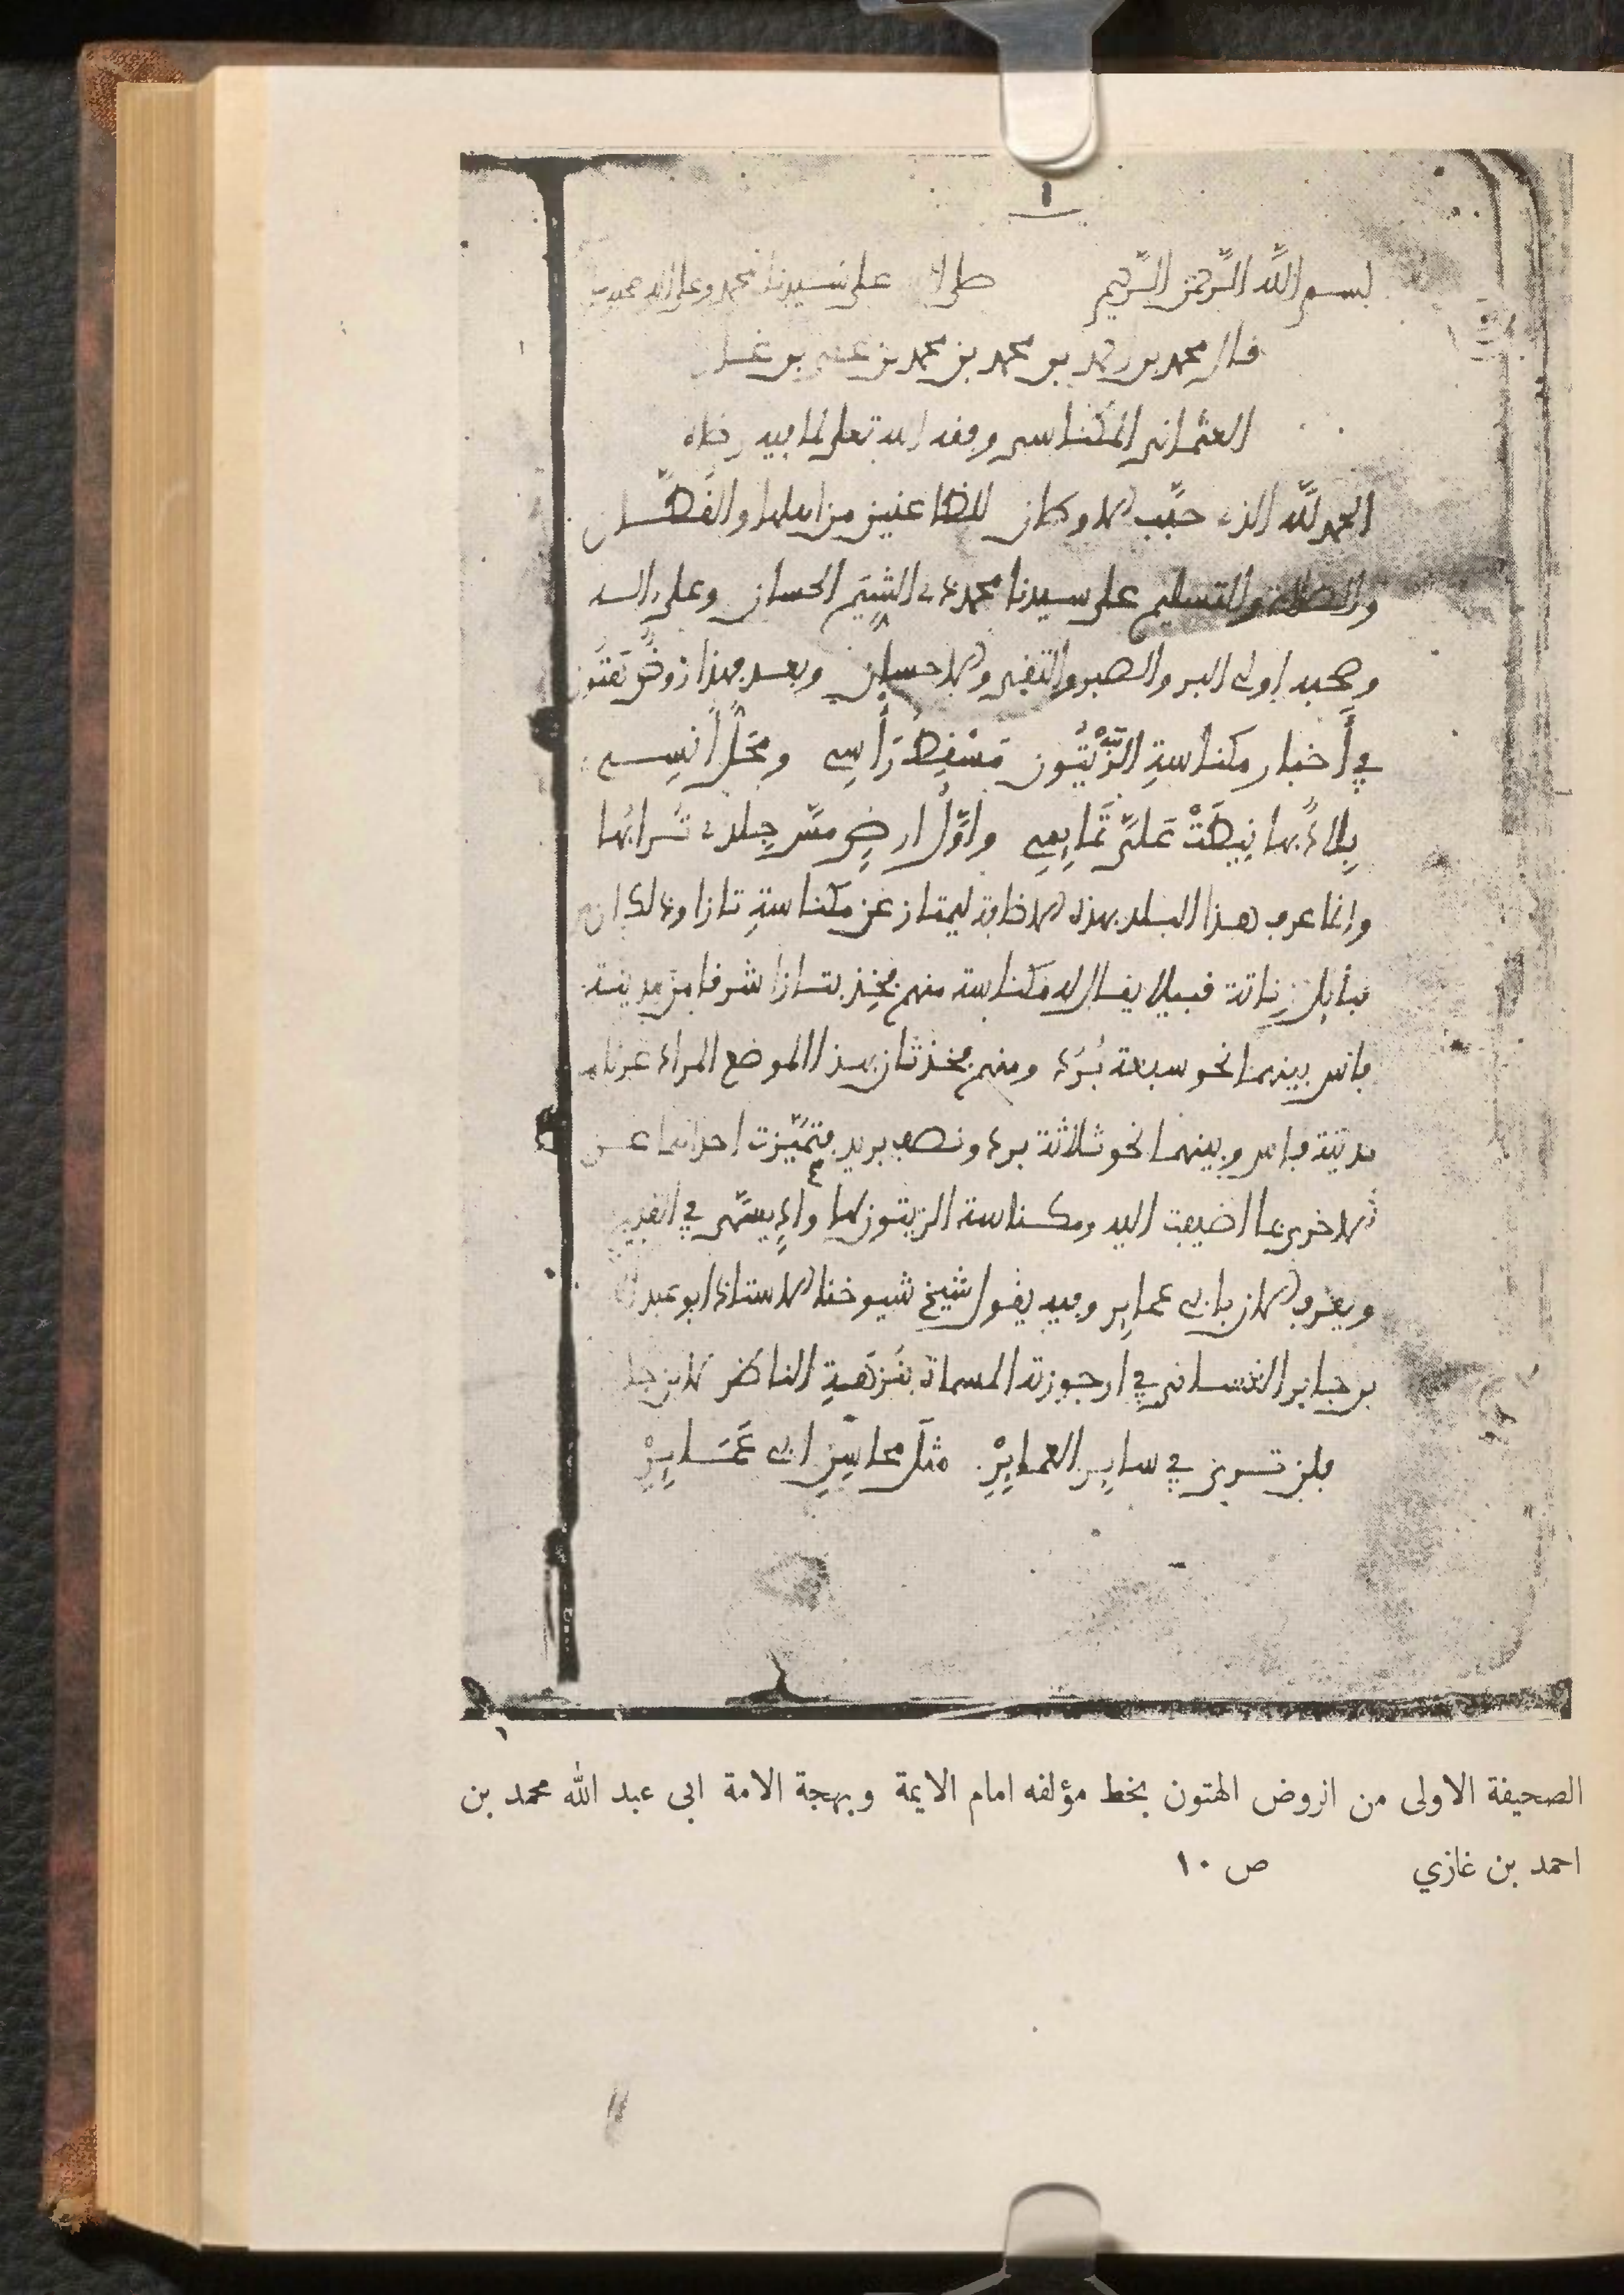 ١
بسم الله الرحمن الرحيم صلى الله على سيدنا محمد وعلى اله وصحبه
قال محمد بن احمد بن محمد بن محمد بن علي بن غازي
العثماني المكناسي وفقه الله تعلى لما فيه رضاه
الحمد لله الذي حبّب الاوطان للظاعنين من اهلها والقطّان
والصلاة والتسليم على سيدنا محمد ذي الشِّيَم الحسان وعلى اله
وصحبه اولي البر والصبر والتقى والاحسان وبعد فهذا روضٌ هَتُون
في أَخبار مكناسةِ الزَّيْتُون مَسْقِطُ رَأْسِي ومَحَلُّ أُنسِي
بِلادٌ بها نِيطَتْ عَلَيَّ تَمَايِمِي وأوَّلُ ارضٍ مسَّ جِلدي تُرابُها
وانما عرف هذا البلد بهذه الاضافة ليمتاز عن مكناسةِ تازا وذلك ان في
قبايل زِناتة قبيلا يقال له مكناسة منهم فخِذ بتازا شرقا من مدينة
فاس بينهما نحو سبعة بُرُد ومنهم فخذ ثان بهذا الموضع المراد غربا من
مدينة فاس وبينهما نحو ثلاثة برد ونصف بريد فتميَّزت احداهما عن
الاخرى بما اضيفت اليه ومكناسة الزيتون لها وادٍ يسمّى في القديم
ويعرف الان بابي عماير وفيه يقول شيخ شيوخنا الاستاذ ابو عبد الله
بن جابر الغساني في ارجوزته المسماة بنُزهَةِ الناظر لابن جابر
فلن ترى في سايِرِ العمايِرْ مثلَ محاسِنِ ابي عَمَايِرْ
الصحيفة الاولى من الروض الهتون بخط مؤلفه امام الايمة وبهجة الامة ابى عبد الله محمد بن
احمد بن غازي ص ١٠